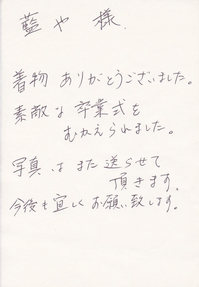 藍や 様
着物 ありがとうございました。
素敵な 卒業式を
むかえられました。
写真 は また 送らせて
頂きます。
今後も宜しく お願い致します。